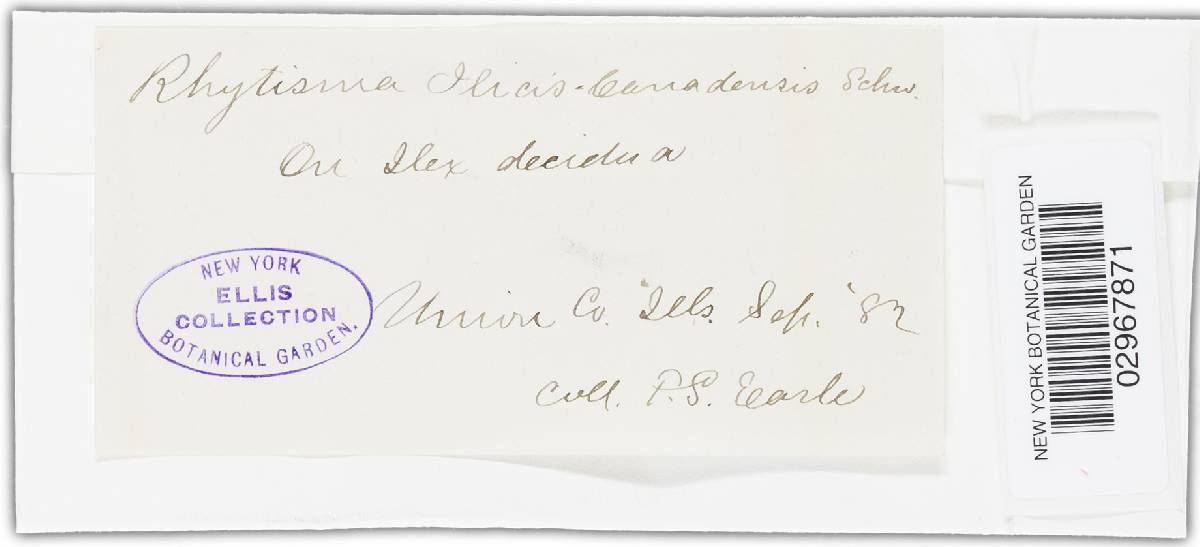 Rhytisma Ilicis-Canadensis Schw.
On Ilex decidua
NEW YORK
ELLIS
COLLECTION
BOTANICAL GARDEN.
Union Co. Ills. Sep. '82
Coll. F.S. Earle
NEW YORK BOTANICAL GARDEN
02967871